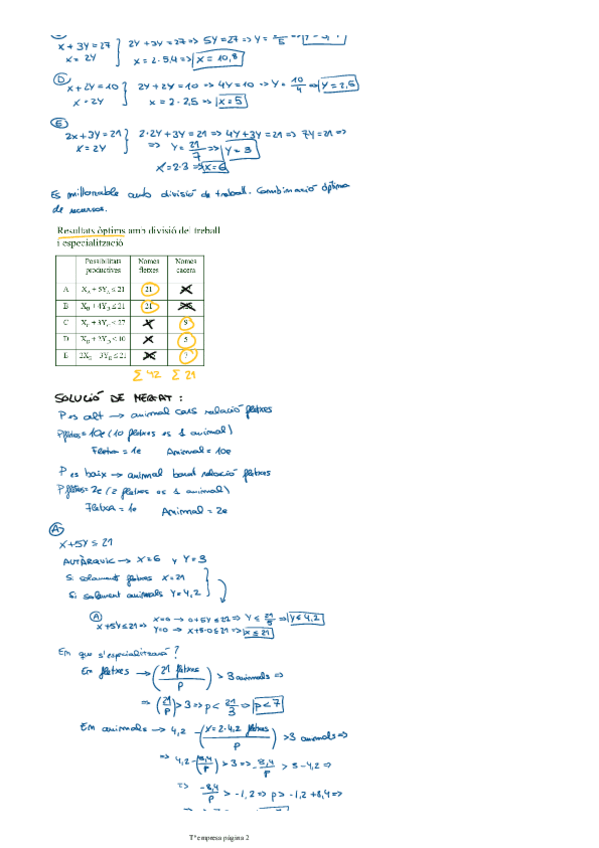 x + 3Y = 27 } 2Y + 3Y = 27 => 5Y = 27 => Y =
x = 2Y x = 2·5,4 => x = 10,8
D x + 2Y = 10 } 2Y + 2Y = 10 => 4Y = 10 => Y = 10/4 => Y = 2,5
x = 2Y x = 2·2,5 => x = 5
E
2x + 3Y = 21 } 2·2Y + 3Y = 21 => 4Y + 3Y = 21 => 7Y = 21 =>
x = 2Y => Y = 21/7 => Y = 3
x = 2·3 => x = 6
Es millorable amb divisió de treball. Combinació òptima
de recursos.
Resultats òptims amb divisió del treball
i especialització
Possibilitats productives Només fletxes Només cacera
A X_A + 5Y_A ≤ 21 21
B X_B + 4Y_B ≤ 21 21
C X_C + 3Y_C ≤ 27 9
D X_D + 2Y_D ≤ 10 5
E 2X_E 3Y_E ≤ 21 7
Σ 42 Σ 21
SOLUCIÓ DE MERCAT :
P es alt → animal cars relació fletxes
Pfletxes = 10e (10 fletxes es 1 animal)
Fletxa = 1e Animal = 10e
P es baix → animal barat relació fletxes
Pfletxes = 2e (2 fletxes es 1 animal)
Fletxa = 1e Animal = 2e
A
x + 5Y ≤ 21
AUTÀRQUIC → X = 6 y Y = 3
Si solament fletxes X = 21
Si solament animals Y = 4,2
A
x + 5Y ≤ 21 => x = 0 → 0 + 5Y ≤ 21 => Y ≤ 21/5 => Y ≤ 4,2
Y = 0 → x + 5·0 ≤ 21 => x ≤ 21
En que s'especialitzarà?
En fletxes → (21 fletxes / P) > 3 animals =>
=> (21/P) > 3 => P < 21/3 => P < 7
En animals → 4,2 - (Y = 2·4,2 fletxes / P) > 3 animals =>
=> 4,2 - (8,4/P) > 3 => - 8,4/P > 3 - 4,2 =>
=> -8,4/P > -1,2 => P > -1,2 + 8,4 =>
Tª empresa página 2